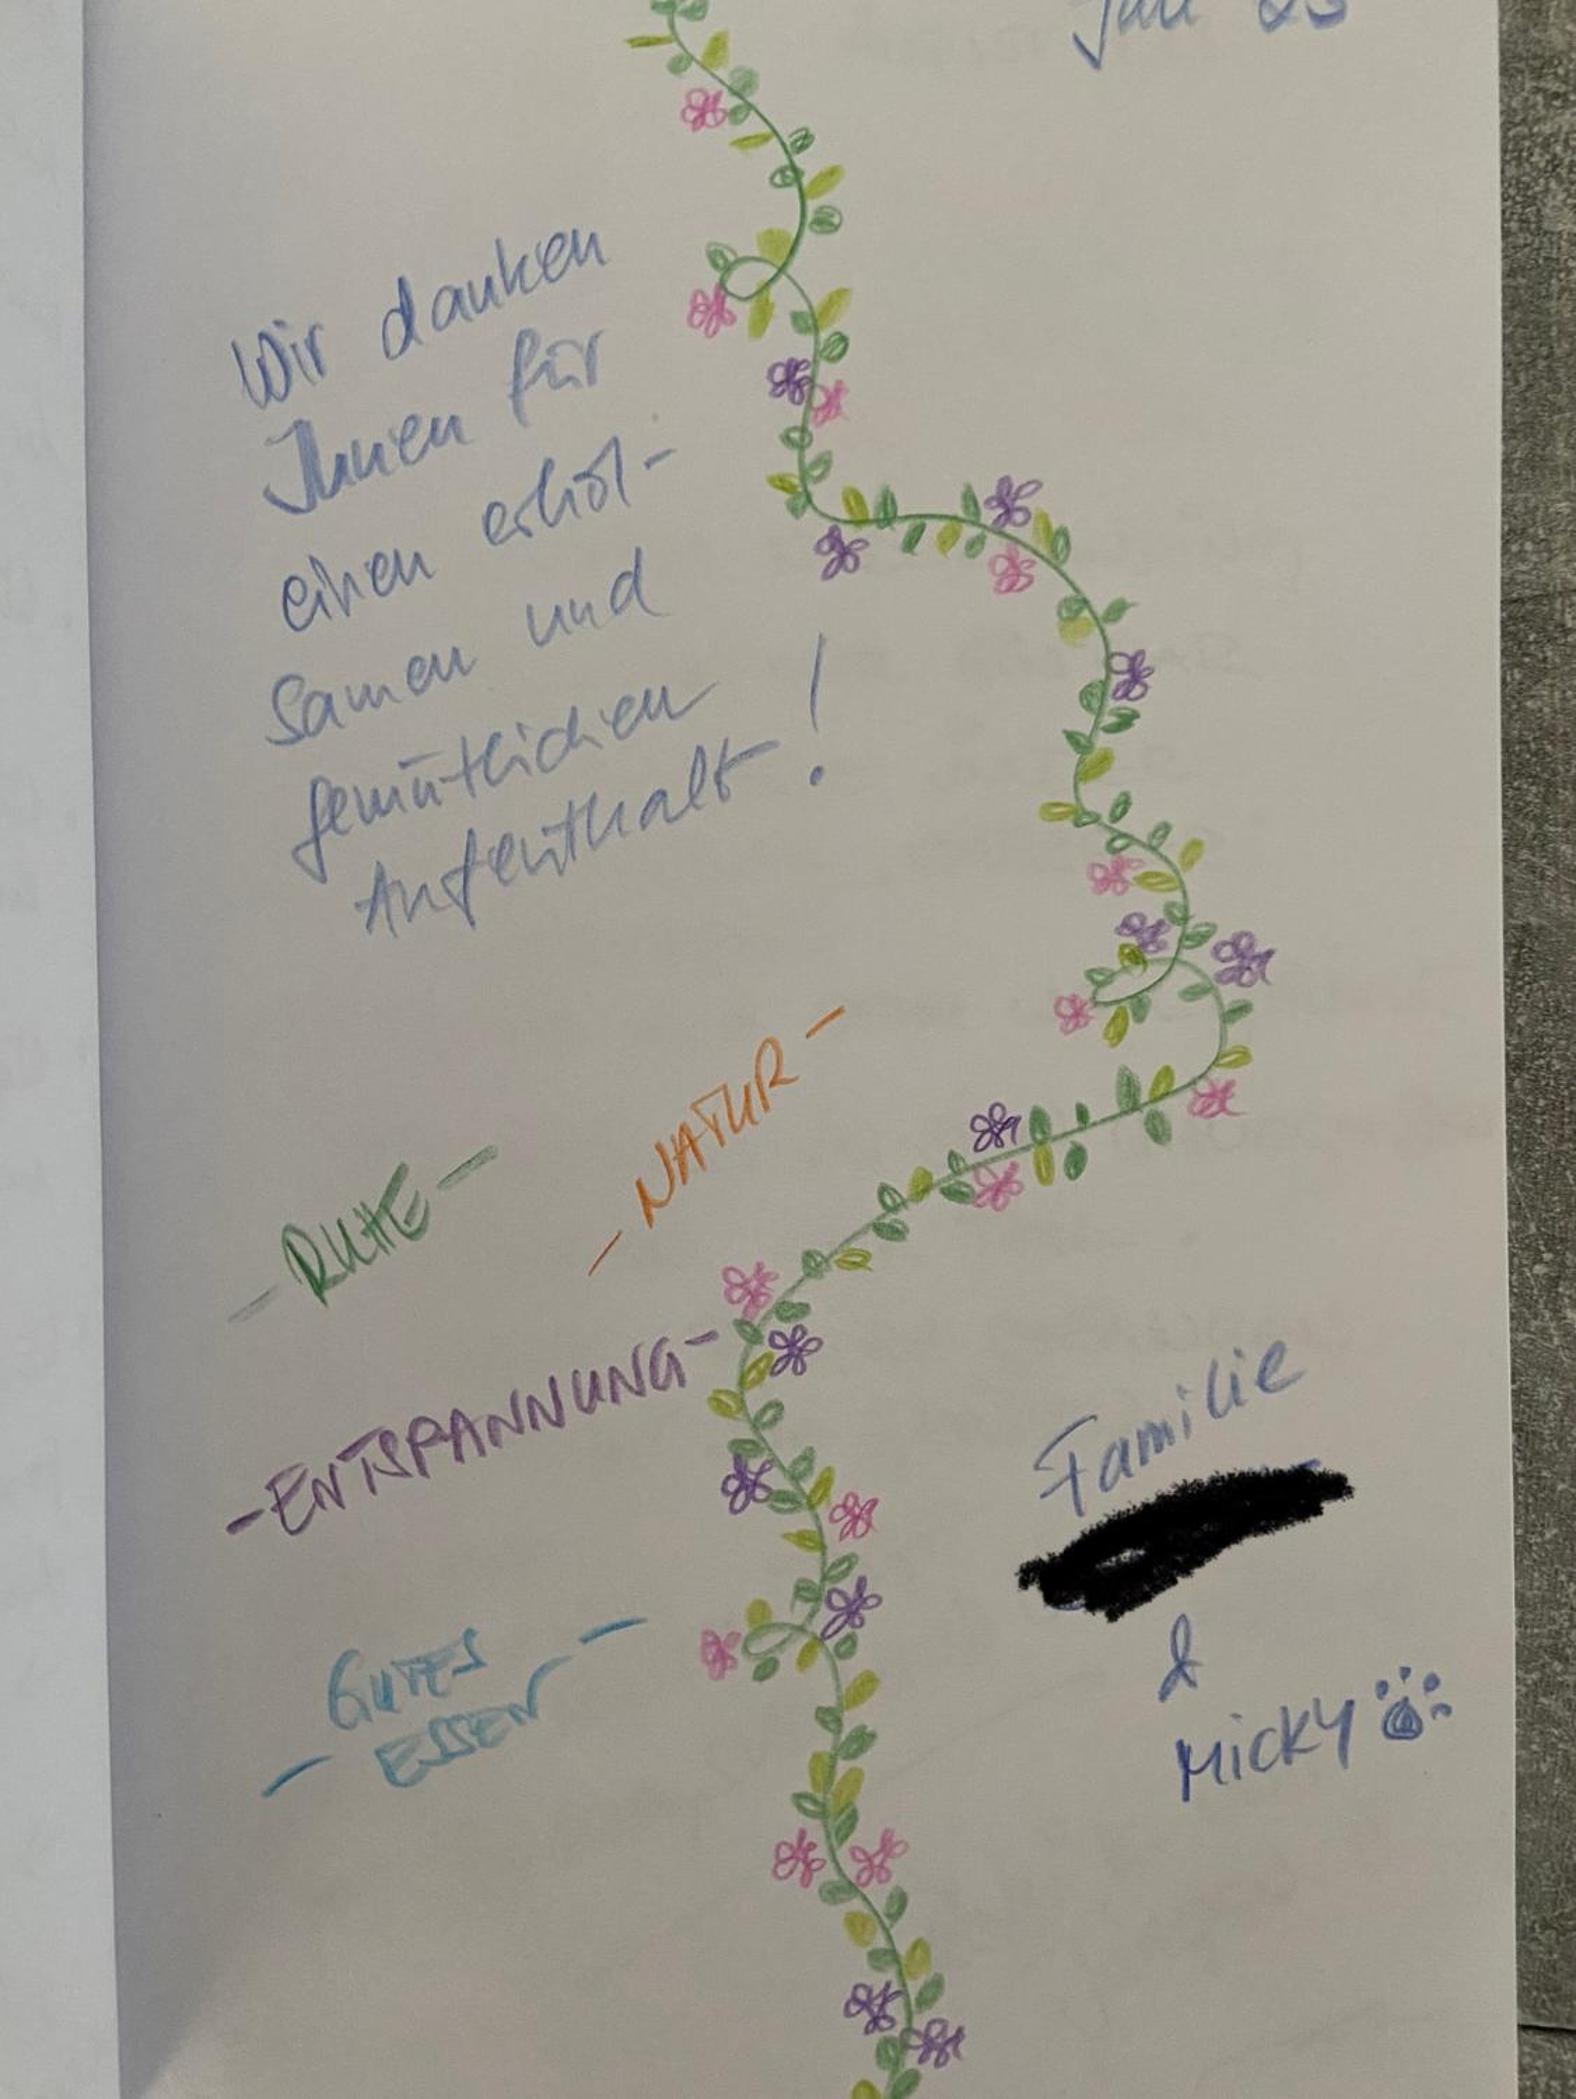 Juli 23
Wir danken
Ihnen für
einen erhol-
samen und
gemütlichen
Aufenthalt!
- NATUR -
- RUHE -
- ENTSPANNUNG -
GUTES
- ESSEN -
Familie
&
Micky